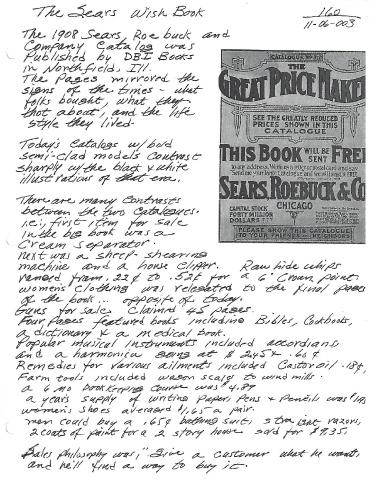 The Sears Wish Book
160
11-06-003
The 1908 Sears, Roebuck and
Company Catalog was
Published by DBI Books
in Northfield, Ill.
The Pages mirrored the
signs of the times - what
folks bought, what they
thot about, and the life
style they lived.
Today's Catalogs w/ bold
semi-clad models contrast
sharply w/ the black & white
illustrations of that era.
There are many contrasts
between the two Catalogues.
i.e., first item for sale
in the big book was a
Cream separator.
Next was a sheep-shearing
machine and a horse clipper. Rawhide whips
ranged from .22¢ to .52¢ for a 6' Crown point.
women's clothing was relegated to the final pages
of the book... opposite of today.
Guns for sale claimed 45 pages.
Four pages featured books including Bibles, Cookbooks,
a dictionary & a medical book.
Popular musical instruments included accordians
and a harmonica going at $2.45 & .60¢
Remedies for various ailments included Castor oil .18¢,
Farm tools included wagon scales to wind mills.
a 6 mo bookkeeping course was 4.87
a year's supply of writing Paper, Pens & Pencils was
women's shoes averaged $1.65 a pair.
men could buy a .65¢ bathing suit, straight razors,
2 coats of paint for a 2 story house sold for $9.35.
Sales philosophy was, "Give a customer what he wants
and he'll find a way to buy it.
CATALOGUE No. 117
THE
GREAT PRICE MAKER
SEE THE GREATLY REDUCED
PRICES SHOWN IN THIS
CATALOGUE
THIS BOOK WILL BE SENT FREE
SEARS, ROEBUCK & CO
CHICAGO
CAPITAL STOCK
FORTY MILLION
DOLLARS
PLEASE SHOW THIS CATALOGUE
TO YOUR FRIENDS AND NEIGHBORS